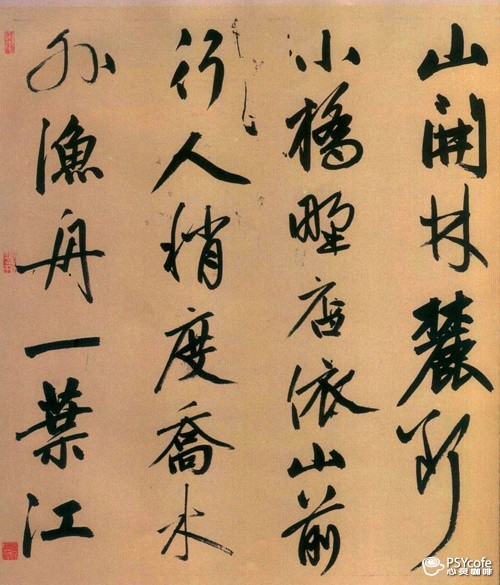 山開林麓斷
小橋野店依山前
行人稍度喬木
外漁舟一葉江
PSYcofe
心灵咖啡